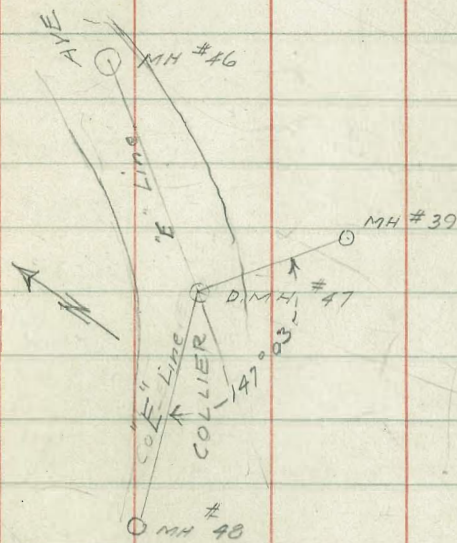 AVE
MH #46
"E" Line
MH #39
D.MH. #47
N
147° 03'
"E" Line
COLLIER
MH #48